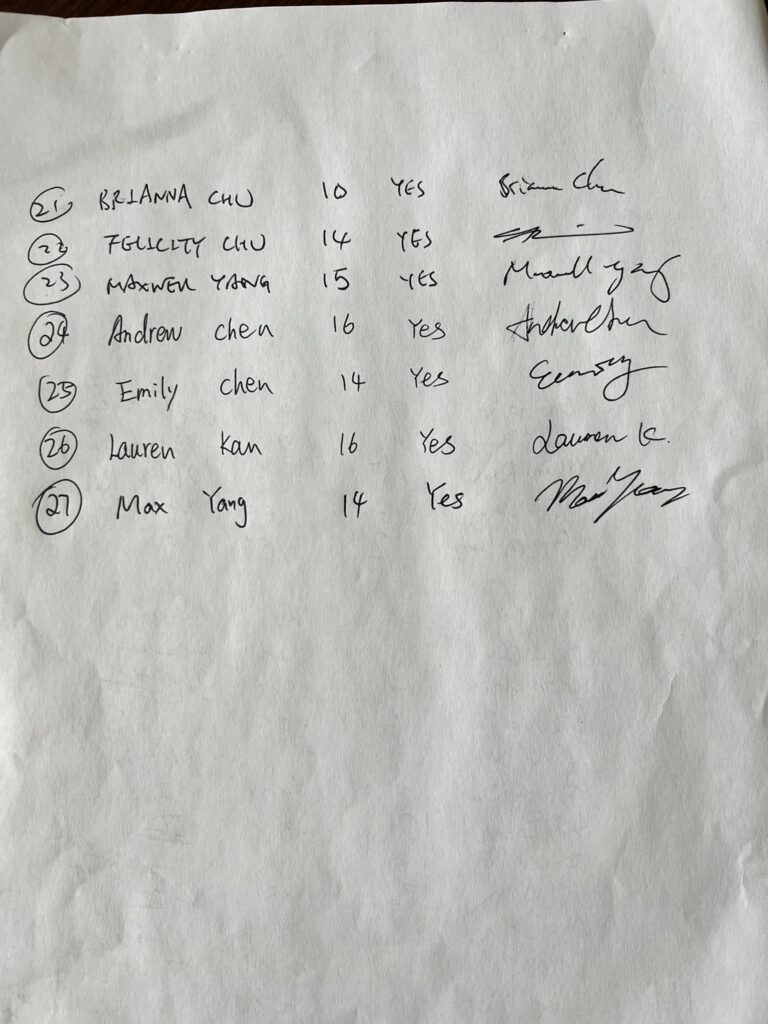 21 BRIANNA CHU 10 YES Brianna Chu
22 FELICITY CHU 14 YES
23 MAXWELL YANG 15 YES Maxwell Yang
24 Andrew chen 16 Yes Andrew Chen
25 Emily chen 14 Yes
26 Lauren Kan 16 Yes Lauren K.
27 Max Yang 14 Yes Max Yang